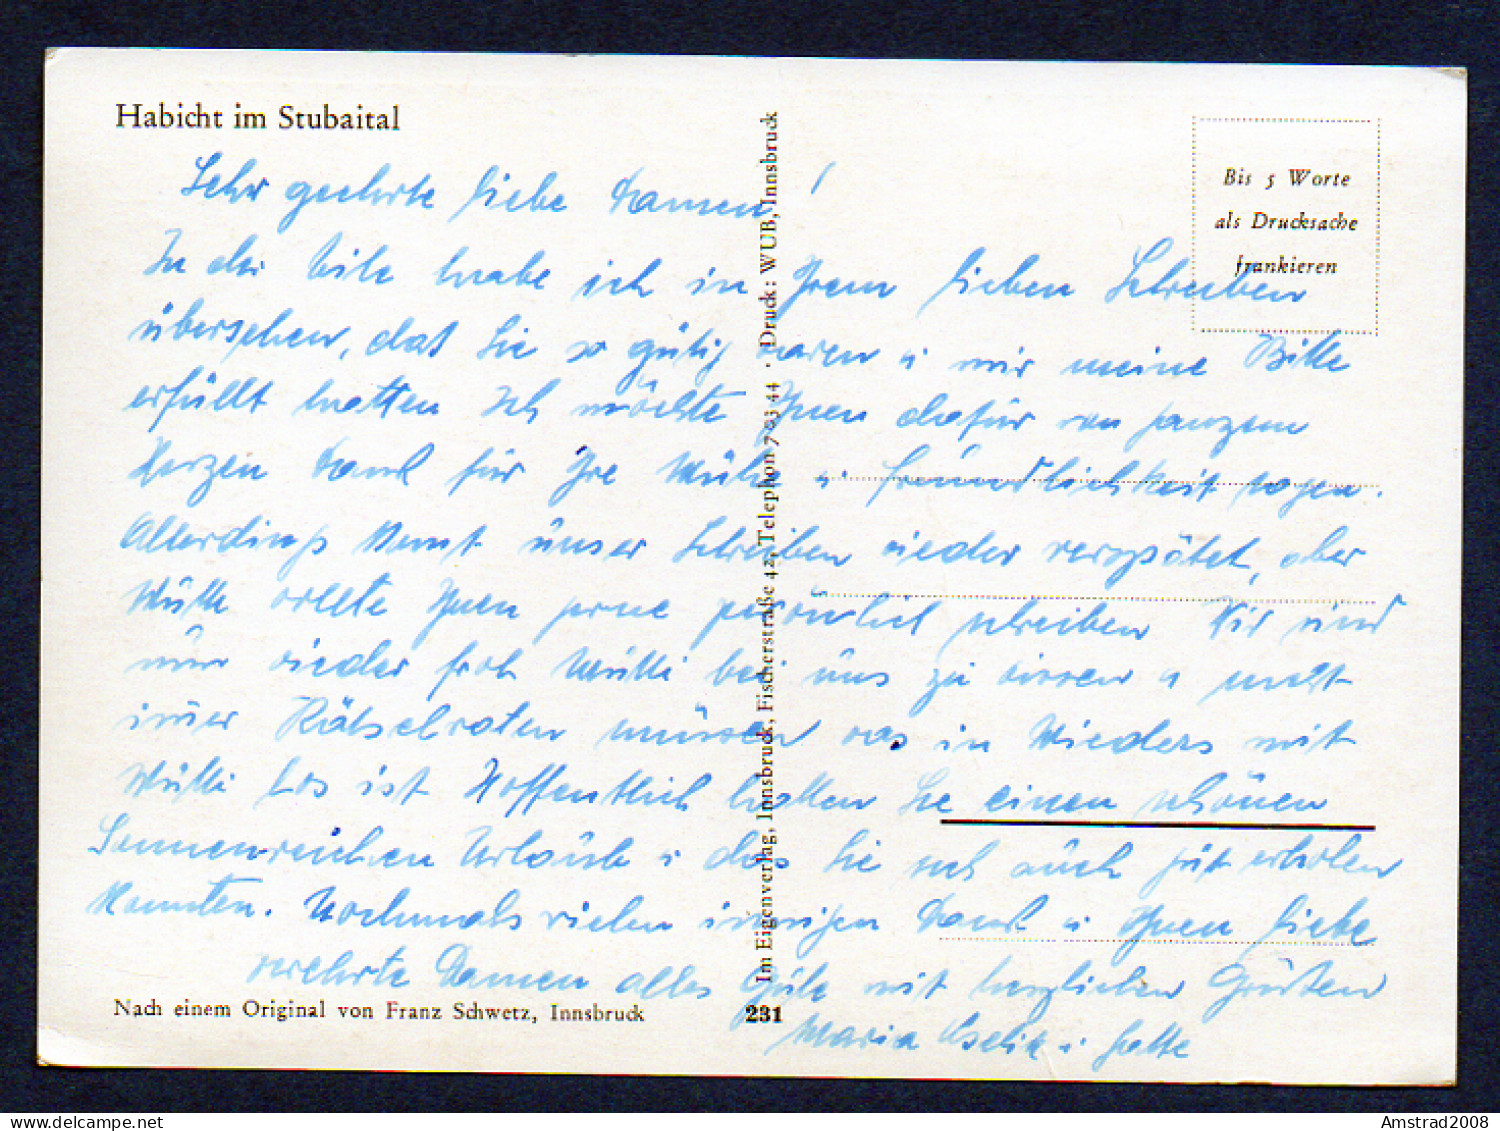 Habicht im Stubaital
Bis 5 Worte
als Drucksache
frankieren
Sehr geehrte liebe Damen!
In der Eile habe ich in Ihrem lieben Schreiben
übersehen, daß Sie so gütig waren u mir meine Bitte
erfüllt hatten Ich möchte Ihnen dafür von ganzem
Herzen Dank für Ihre Mühe u freundlichkeit sagen.
Allerdings kommt unser Schreiben wieder verspätet, aber
Mutti wollte Ihnen gerne persönlich schreiben Wir sind
nur wieder froh Mutti bei uns zu wissen u nicht
immer Rätselraten müssen was in Wieders mit
Mutti los ist Hoffentlich hatten Sie einen schönen
Sonnenreichen Urlaub u das Sie sich auch gut erholen
konnten. Nochmals vielen innigen Dank u Ihnen liebe
verehrte Damen alles Gute mit herzlichen Grüßen
Maria u Gatte
Nach einem Original von Franz Schwetz, Innsbruck
231
Im Eigenverlag, Innsbruck, Fischerstraße 42, Telephon 7 03 44 · Druck: WUB, Innsbruck
Amstrad2008